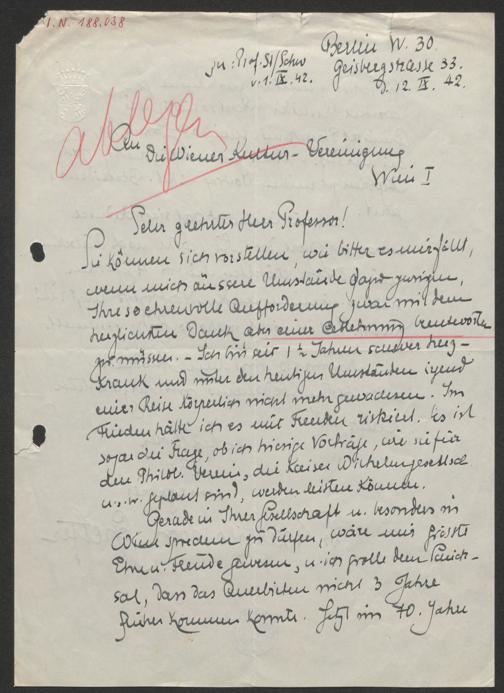 I.N. 188.038
Berlin W. 30
Zu: Prof. St/Schw Geisbergstrasse 33.
v. 1. IX. 42. d. 12. IX. 42.
ablegen
An
Die Wiener Kultur-Vereinigung
Wien I
Sehr geehrter Herr Professor!
Sie können sich vorstellen, wie bitter es mir fällt,
wenn mich äussere Umstände dazu zwingen,
Ihre so ehrenvolle Aufforderung zwar mit dem
herzlichsten Dank aber einer Ablehnung beantworten
zu müssen. - Ich bin seit 1½ Jahren schwer herz-
krank und unter den heutigen Umständen irgend
einer Reise körperlich nicht mehr gewachsen. Im
Frieden hätte ich es mit Freuden riskiert. Es ist
sogar die Frage, ob ich hiesige Vorträge, wie sie für
den Philol. Verein, die Kaiser Wilhelmgesellsch
u.s.w. geplant sind, werde leisten können.
Gerade in Ihrer Gesellschaft u. besonders in
Wien sprechen zu dürfen, wäre mir grösste
Ehre u. Freude gewesen, u. ich grolle dem Schick-
sal, dass das Anerbieten nicht 3 Jahre
früher kommen konnte. Jetzt im 70. Jahre